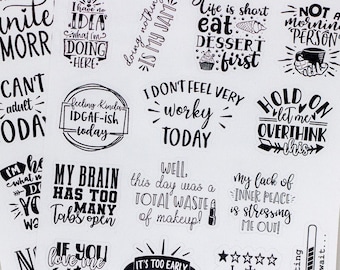 IDEA
what i'm
DOING
HERE
doing nothing
IS MY DAY
Life is short
eat
DESSERT
first
NOT A
morning
PERSON
MORR
CAN'T
adult
ODAY
feeling kinda
IDGAF-ish
today
I DON'T FEEL VERY
worky
TODAY
HOLD ON
let me
OVERTHINK
this
I'M
MY BRAIN
HAS TOO
MANY
Tabs open
WELL,
this day was a
TOTAL WASTE
of makeup!
my lack of
INNER PEACE
is stressing
ME OUT!
IF YOU
IT'S TOO EARLY
wait...